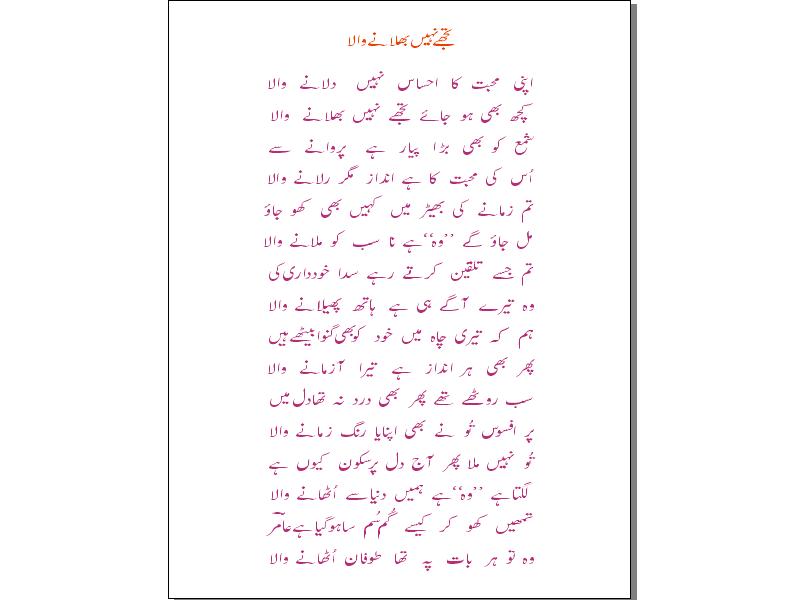 تجھے نہیں بھلانے والا
اپنی محبت کا احساس نہیں دلانے والا
کچھ بھی ہو جائے تجھے نہیں بھلانے والا
شمع کو بھی بڑا پیار ہے پروانے سے
اُس کی محبت کا ہے انداز مگر رلانے والا
تم زمانے کی بھیڑ میں کہیں بھی کھو جاؤ
مل جاؤ گے ’’وہ‘‘ ہے نا سب کو ملانے والا
تم جسے تلقین کرتے رہے سدا خودداری کی
وہ تیرے آگے ہی ہے ہاتھ پھیلانے والا
ہم کہ تیری چاہ میں خود کو بھی گنوا بیٹھے ہیں
پھر بھی ہر انداز ہے تیرا آزمانے والا
سب روٹھے تھے پھر بھی درد نہ تھا دل میں
پر افسوس تُو نے بھی اپنایا رنگ زمانے والا
تُو نہیں ملا پھر آج دل پرسکون کیوں ہے
لگتا ہے ’’وہ‘‘ ہے ہمیں دنیا سے اُٹھانے والا
تمھیں کھو کر کیسے گُم سُم سا ہو گیا ہے عامرؔ
وہ تو ہر بات پہ تھا طوفان اُٹھانے والا